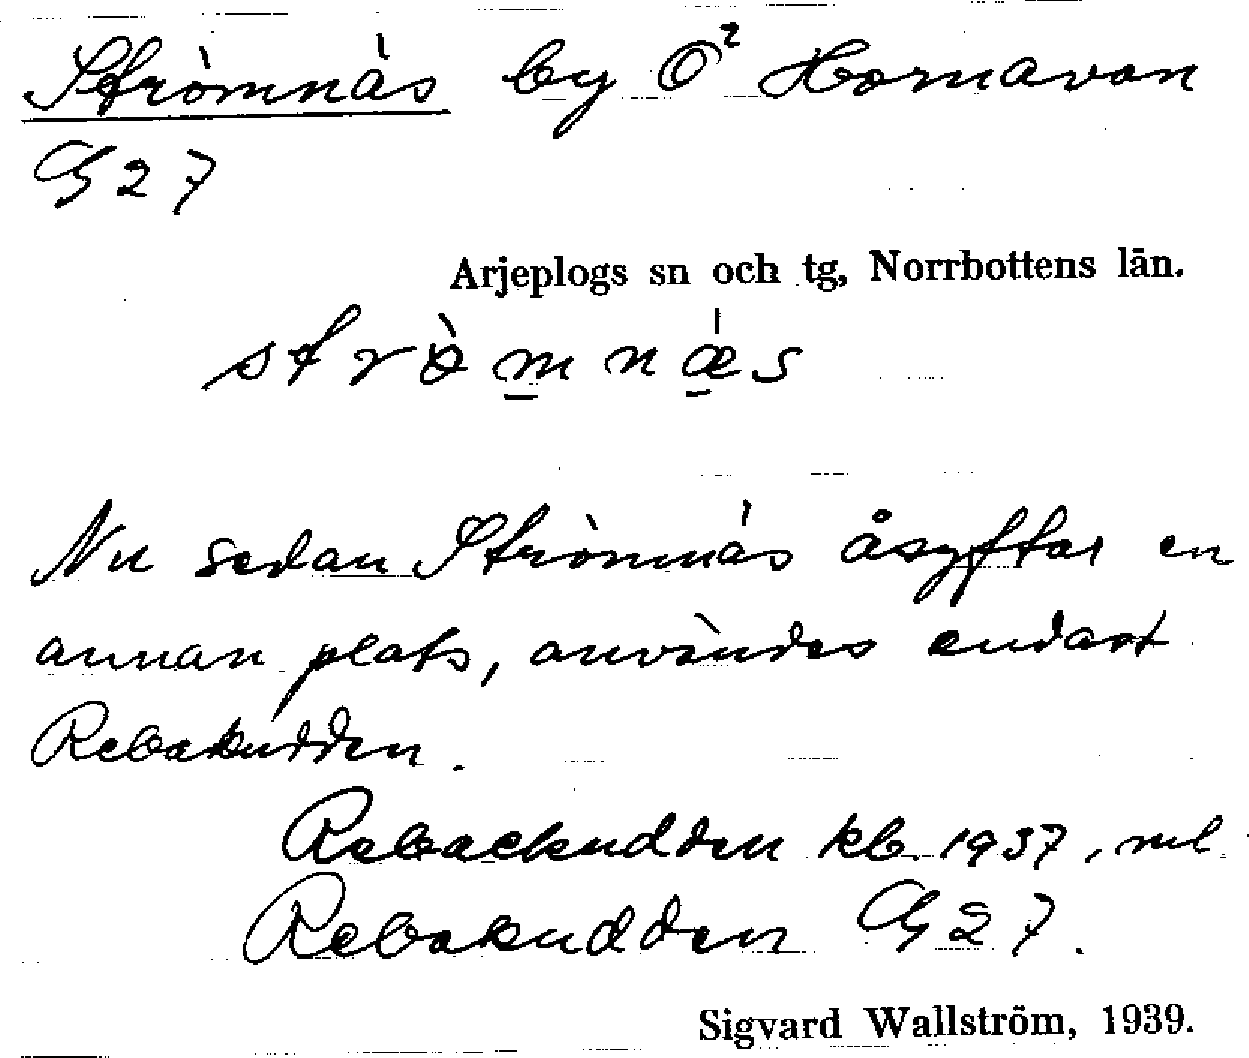 Strömnäs by Ö² Hornavan
G27
Arjeplogs sn och tg, Norrbottens län.
strö̀mnæ̍s
Nu sedan Strömnäs åsyftar en
annan plats, användes endast
Rebakudden.
Rebackudden kb. 1937, ml
Rebakudden G27.
Sigvard Wallström, 1939.